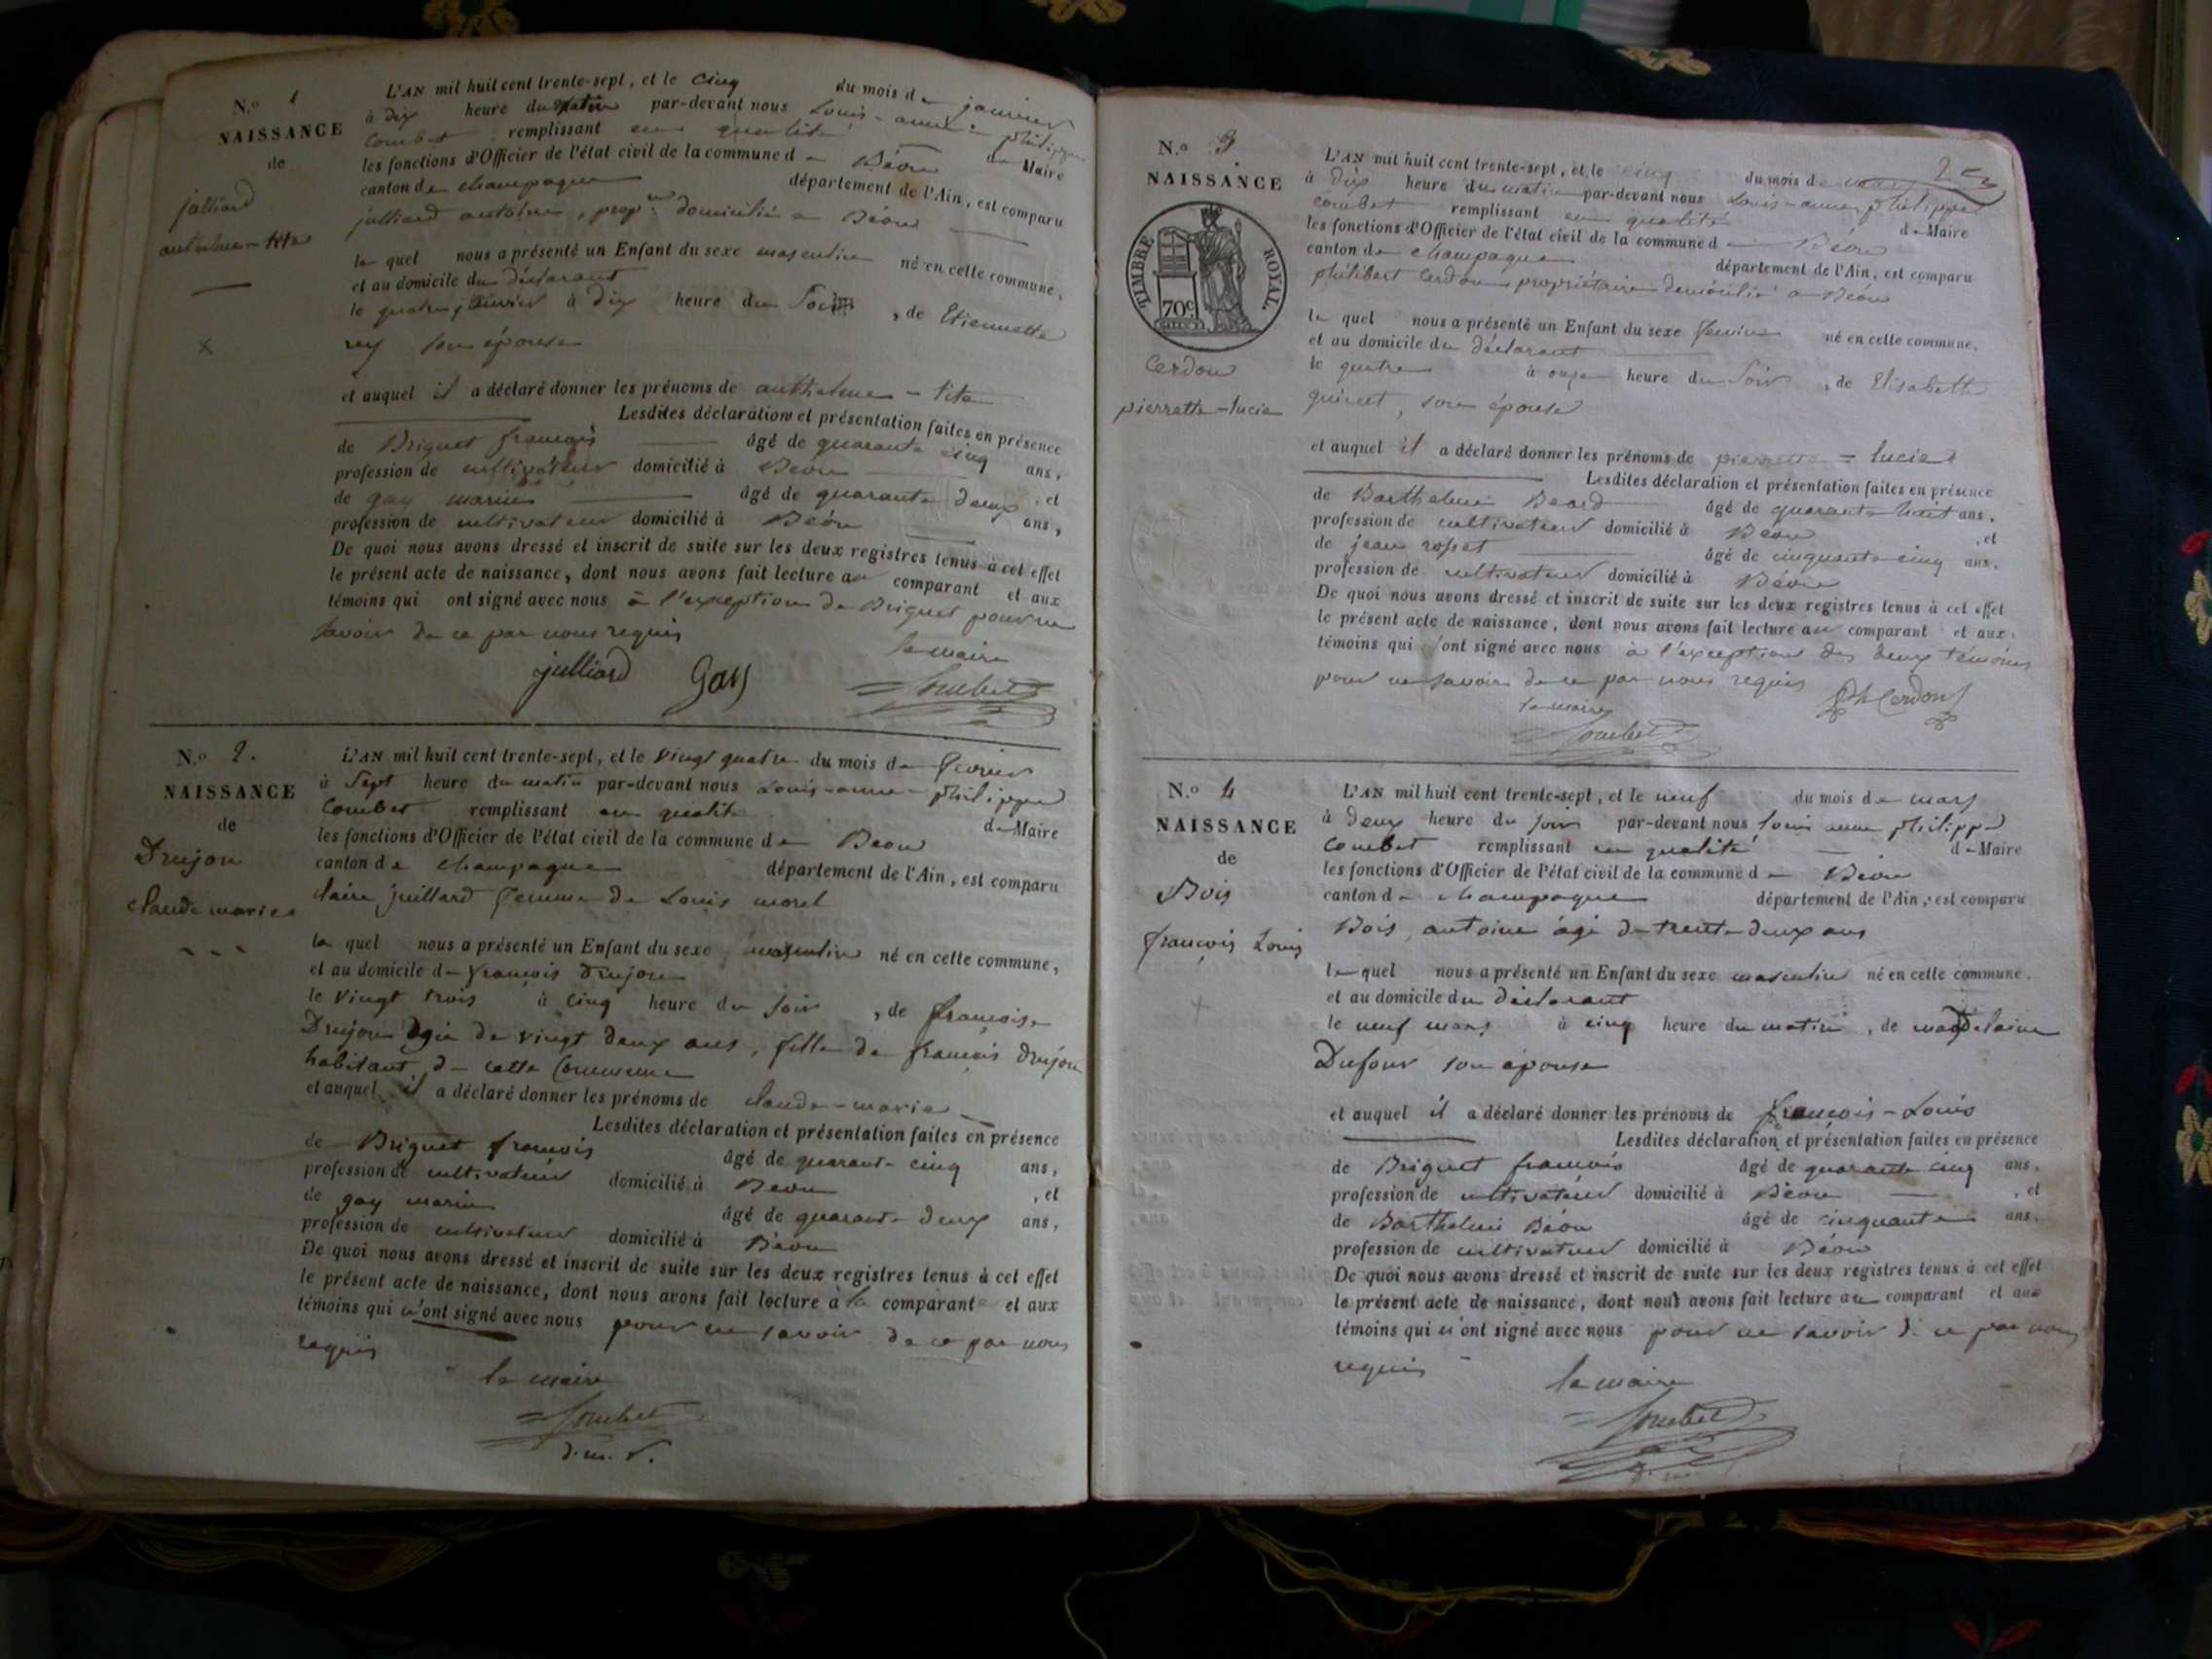 N.º 1
NAISSANCE
de
julliard
anthelme-tite
L'AN mil huit cent trente-sept, et le cinq du mois de janvier
à dix heure du matin par-devant nous Louis-anne-philippe
Combet remplissant en qualité de Maire
les fonctions d'Officier de l'état civil de la commune de Béon
canton de champagne département de l'Ain, est comparu
julliard antoine, prop.re domicilié a Béon
le quel nous a présenté un Enfant du sexe masculin né en cette commune,
et au domicile du déclarant
le quatre janvier à dix heure du Soir, de Etiennette
rey son épouse
et auquel il a déclaré donner les prénoms de anthelme-tite
Lesdites déclaration et présentation faites en présence
de Briguet françois âgé de quarante cinq ans,
profession de cultivateur domicilié à Béon, et
de gay marin âgé de quarante deux ans,
profession de cultivateur domicilié à Béon
De quoi nous avons dressé et inscrit de suite sur les deux registres tenus à cet effet
le présent acte de naissance, dont nous avons fait lecture au comparant et aux
témoins qui ont signé avec nous à l'exception de Briguet pour ne
savoir de ce par nous requis
le maire
julliard Gay Combet
N.º 2.
NAISSANCE
de
Drujon
claude marie
L'AN mil huit cent trente-sept, et le vingt quatre du mois de fevrier
à Sept heure du matin par-devant nous Louis-anne-philippe
Combet remplissant en qualité de Maire
les fonctions d'Officier de l'état civil de la commune de Béon
canton de champagne département de l'Ain, est comparu
claire juillard femme de Louis morel
la quel nous a présenté un Enfant du sexe masculin né en cette commune,
et au domicile de françois Drujon
le vingt trois à cinq heure du soir, de françoise
Drujon agée de vingt deux ans, fille de françois drujon
habitant de cette Commune
et auquel il a déclaré donner les prénoms de claude-marie
Lesdites déclaration et présentation faites en présence
de Briguet françois âgé de quarante cinq ans,
profession de cultivateur domicilié à Béon, et
de gay marin âgé de quarante deux ans,
profession de cultivateur domicilié à Béon
De quoi nous avons dressé et inscrit de suite sur les deux registres tenus à cet effet
le présent acte de naissance, dont nous avons fait lecture à la comparante et aux
témoins qui n'ont signé avec nous pour ne savoir de ce par nous
requis
le maire
Combet
d.m.
N.º 3
NAISSANCE
TIMBRE ROYAL
70c
Cerdon
pierrette-lucie
L'AN mil huit cent trente-sept, et le cinq du mois de mars
à dix heure du matin par-devant nous Louis-anne philippe
combet remplissant en qualité de Maire
les fonctions d'Officier de l'état civil de la commune de Béon
canton de champagne département de l'Ain, est comparu
philibert Cerdon propriétaire domicilié a Béon
le quel nous a présenté un Enfant du sexe feminin né en cette commune,
et au domicile du déclarant
le quatre à onze heure du Soir, de Elisabeth
guinet, son épouse
et auquel il a déclaré donner les prénoms de pierrette-lucie
Lesdites déclaration et présentation faites en présence
de Barthelmi Béard âgé de quarante huit ans,
profession de cultivateur domicilié à Béon, et
de jean rosset âgé de cinquante cinq ans,
profession de cultivateur domicilié à Béon
De quoi nous avons dressé et inscrit de suite sur les deux registres tenus à cet effet
le présent acte de naissance, dont nous avons fait lecture au comparant et aux
témoins qui ont signé avec nous à l'exception des deux témoins
pour ne savoir de ce par nous requis Ph Cerdon
le maire
Combet
N.º 4
NAISSANCE
de
Bois
françois Louis
L'AN mil huit cent trente-sept, et le neuf du mois de mars
à deux heure du soir par-devant nous Louis anne philippe
Combet remplissant en qualité de Maire
les fonctions d'Officier de l'état civil de la commune de Béon
canton de champagne département de l'Ain, est comparu
Bois antoine âgé de trente deux ans
le quel nous a présenté un Enfant du sexe masculin né en cette commune,
et au domicile du déclarant
le neuf mars à cinq heure du matin, de magdelaine
Dufour son épouse
et auquel il a déclaré donner les prénoms de françois-Louis
Lesdites déclaration et présentation faites en présence
de Briguet françois âgé de quarante cinq ans,
profession de cultivateur domicilié à Béon, et
de Barthelmi Béon âgé de cinquante ans,
profession de cultivateur domicilié à Béon
De quoi nous avons dressé et inscrit de suite sur les deux registres tenus à cet effet
le présent acte de naissance, dont nous avons fait lecture au comparant et aux
témoins qui n'ont signé avec nous pour ne savoir de ce par nous
requis
le maire
Combet